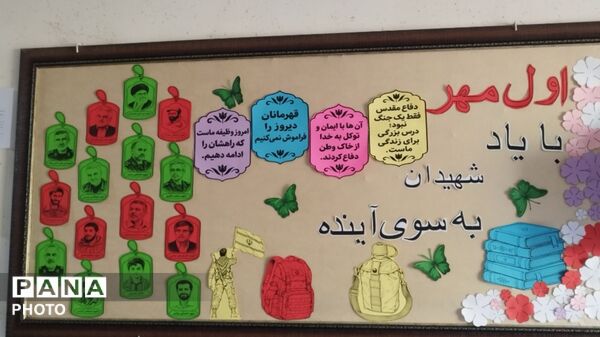 اول مهر
با یاد
شهیدان
به سوی آینده
دفاع مقدس
فقط یک جنگ
نبود؛
درس بزرگی
برای زندگی
ماست.
آن ها با ایمان و
توکل به خدا
از خاک وطن
دفاع کردند.
قهرمانان
دیروز را
فراموش نمی‌کنیم
امروز وظیفه ماست
که راهشان را
ادامه دهیم.
PANA
PHOTO